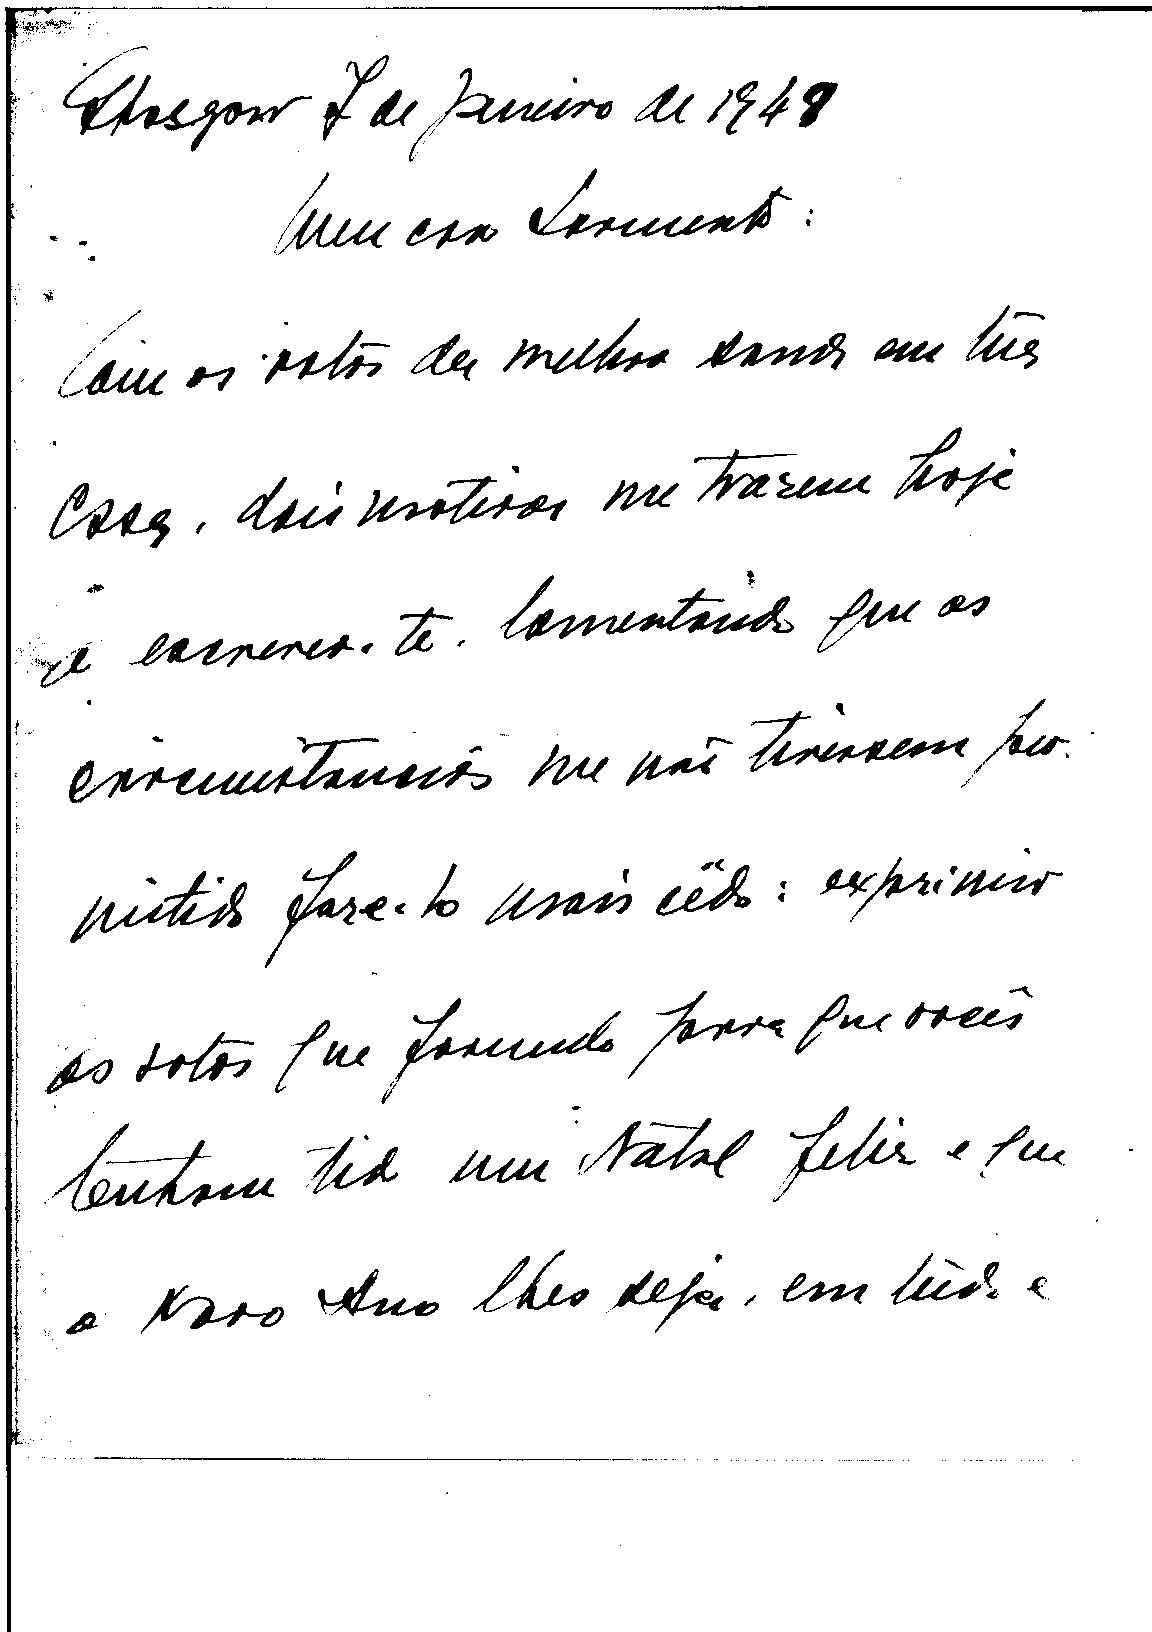 Glasgow 7 de Janeiro de 1948
Meu caro Sarmento:
Com os votos da melhor saude em tua
casa, dois motivos me trazem hoje
a escrever-te, lamentando que as
circumstancias me não tivessem per-
mitido faze-lo mais cêdo: exprimir
os votos que formulo para que vocês
tenham tido um Natal feliz e que
o Novo Ano lhes seja, em tudo e